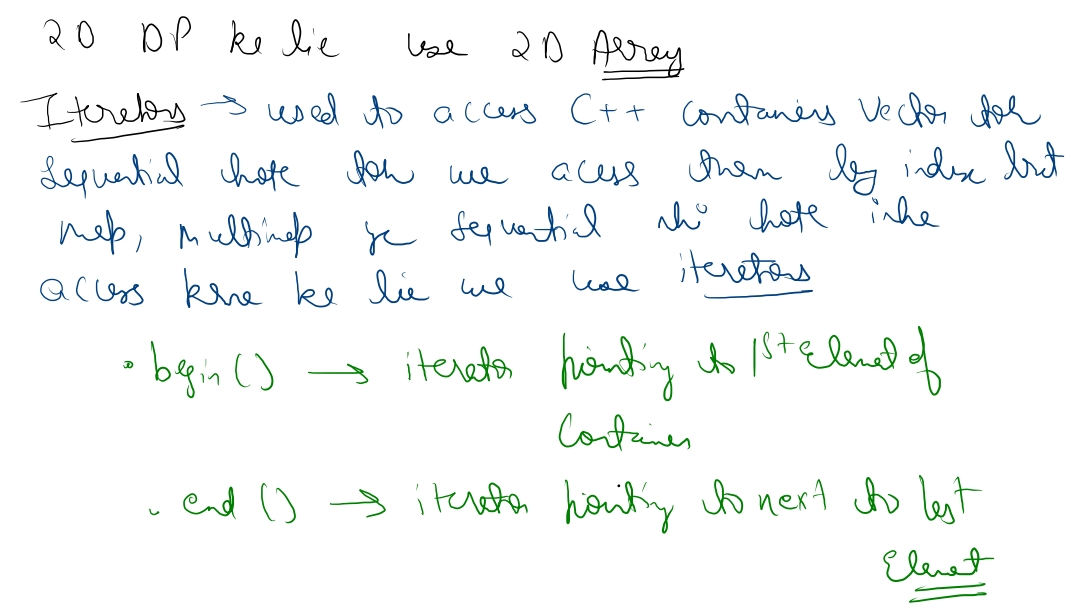 2D DP ke lie use 2D Array
Iteretors → used to access C++ containers Vector toh
Sequential hote toh we acess them by index but
map, multimap ye sequential nhi hote inhe
access krne ke lie we use iteretors
• begin () → iterator pointing to 1st Element of
Container
. end () → iterator pointing to next to last
Element